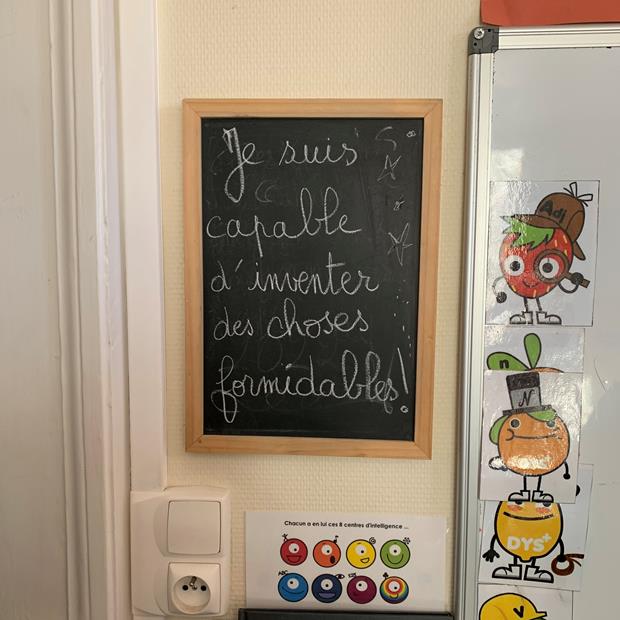 Je suis
capable
d'inventer
des choses
formidables!
Adj
n
N
DYS+
V
Chacun a en lui ces 8 centres d'intelligence ...
ABC